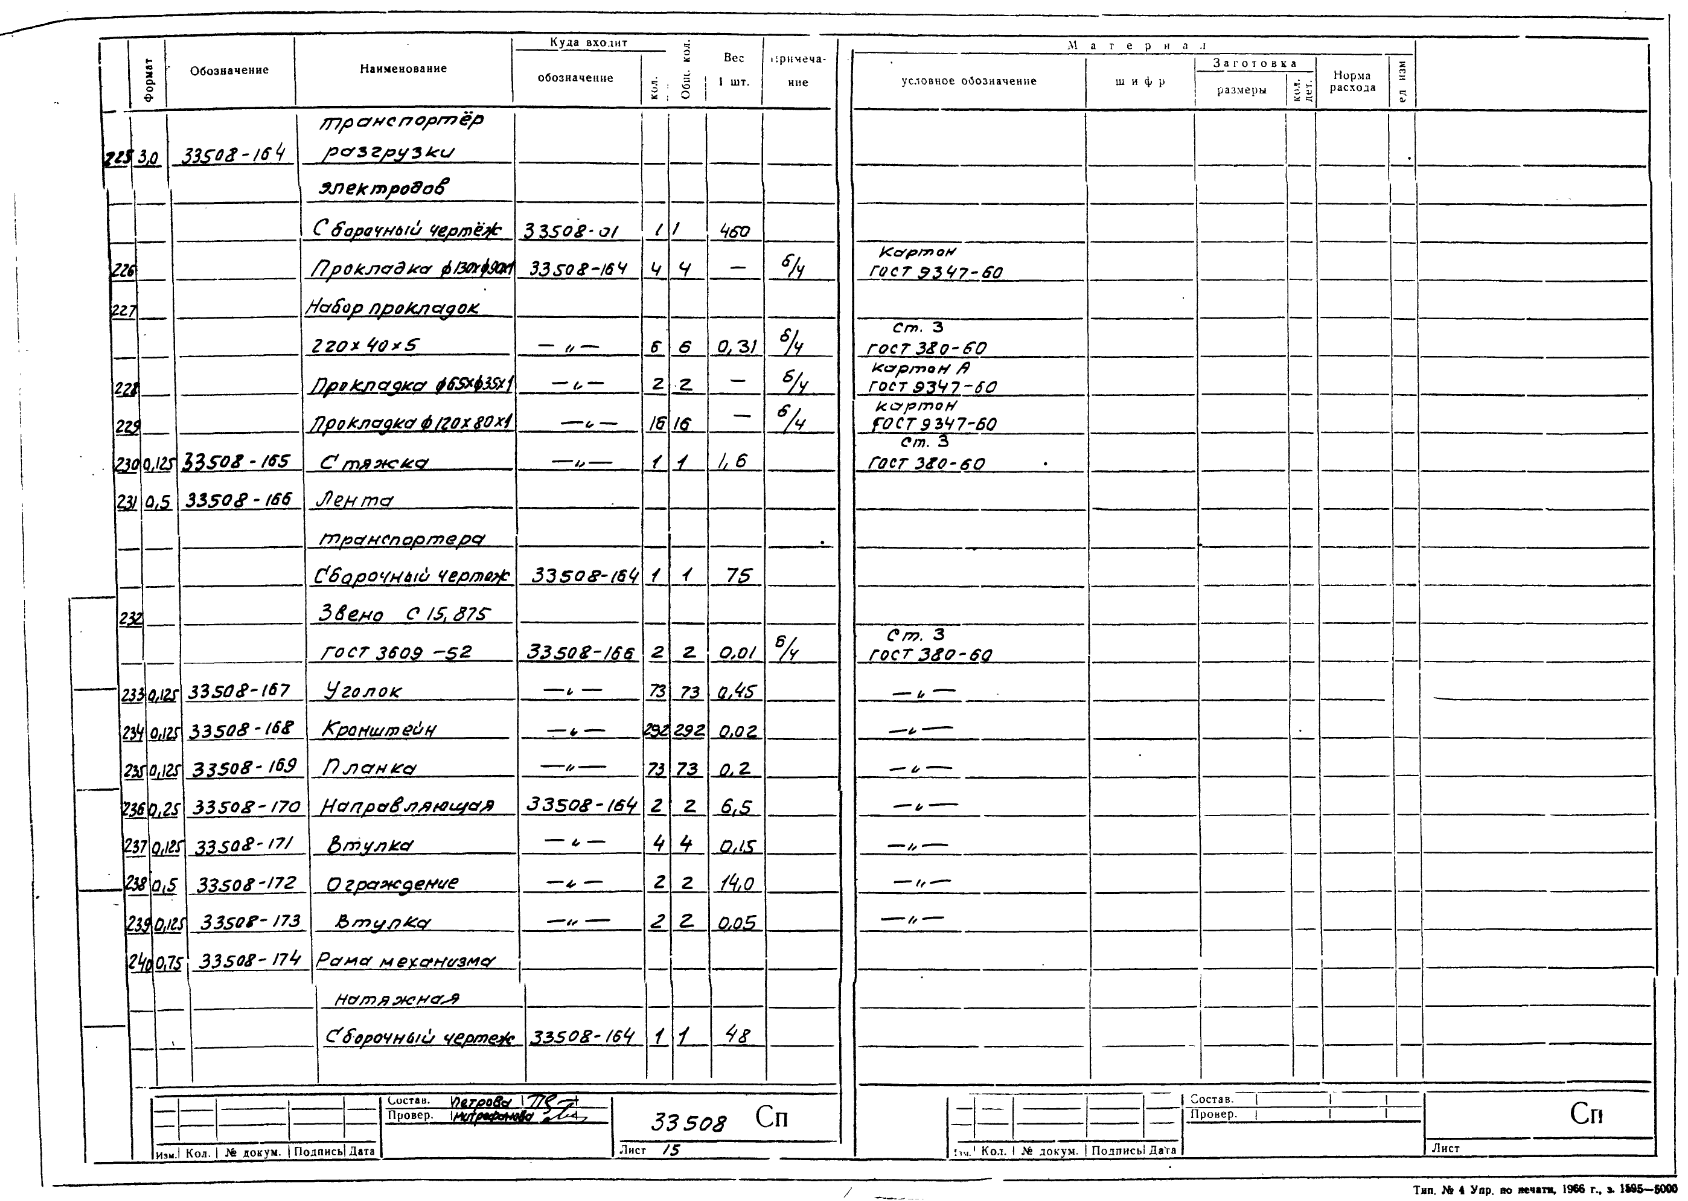 Формат Обозначение Наименование Куда входит обозначение кол. Общ. кол. Вес 1 шт. Примечание Материал условное обозначение шифр Заготовка размеры кол. дет. Норма расхода ед изм
транспортёр
225 3,0 33508-164 разгрузки
электродов
Сборочный чертёж 33508-01 1 1 460
картон
226 Прокладка ф130хф90х1 33508-164 4 4 — б/ч ГОСТ 9347-60
227 Набор прокладок
Ст. 3
220х40х5 —〃— 6 6 0,31 б/ч ГОСТ 380-60
картон А
228 Прокладка ф65хф35х1 —〃— 2 2 — б/ч ГОСТ 9347-60
картон
229 Прокладка ф120х80х1 —〃— 16 16 — б/ч ГОСТ 9347-60
Ст. 3
230 0,125 33508-165 Стяжка —〃— 1 1 1,6 ГОСТ 380-60
231 0,5 33508-166 Лента
транспортера
Сборочный чертеж 33508-164 1 1 75
232 Звено С 15,875
Ст. 3
ГОСТ 3609-52 33508-166 2 2 0,01 б/ч ГОСТ 380-60
233 0,125 33508-167 Уголок —〃— 73 73 0,45 —〃—
234 0,125 33508-168 Кронштейн —〃— 292 292 0,02 —〃—
235 0,125 33508-169 Планка —〃— 73 73 0,2 —〃—
236 0,25 33508-170 Направляющая 33508-164 2 2 6,5 —〃—
237 0,125 33508-171 Втулка —〃— 4 4 0,15 —〃—
238 0,5 33508-172 Ограждение —〃— 2 2 14,0 —〃—
239 0,125 33508-173 Втулка —〃— 2 2 0,05 —〃—
240 0,75 33508-174 Рама механизма
натяжная
Сборочный чертеж 33508-164 1 1 48
Состав. Петрова
Провер. Митрофанова
33508 Сп
Изм. Кол. № докум. Подпись Дата Лист 15
Состав.
Провер.
Сп
Изм. Кол. № докум. Подпись Дата Лист
Тип. № 4 Упр. по печати, 1966 г., з. 1595—5000